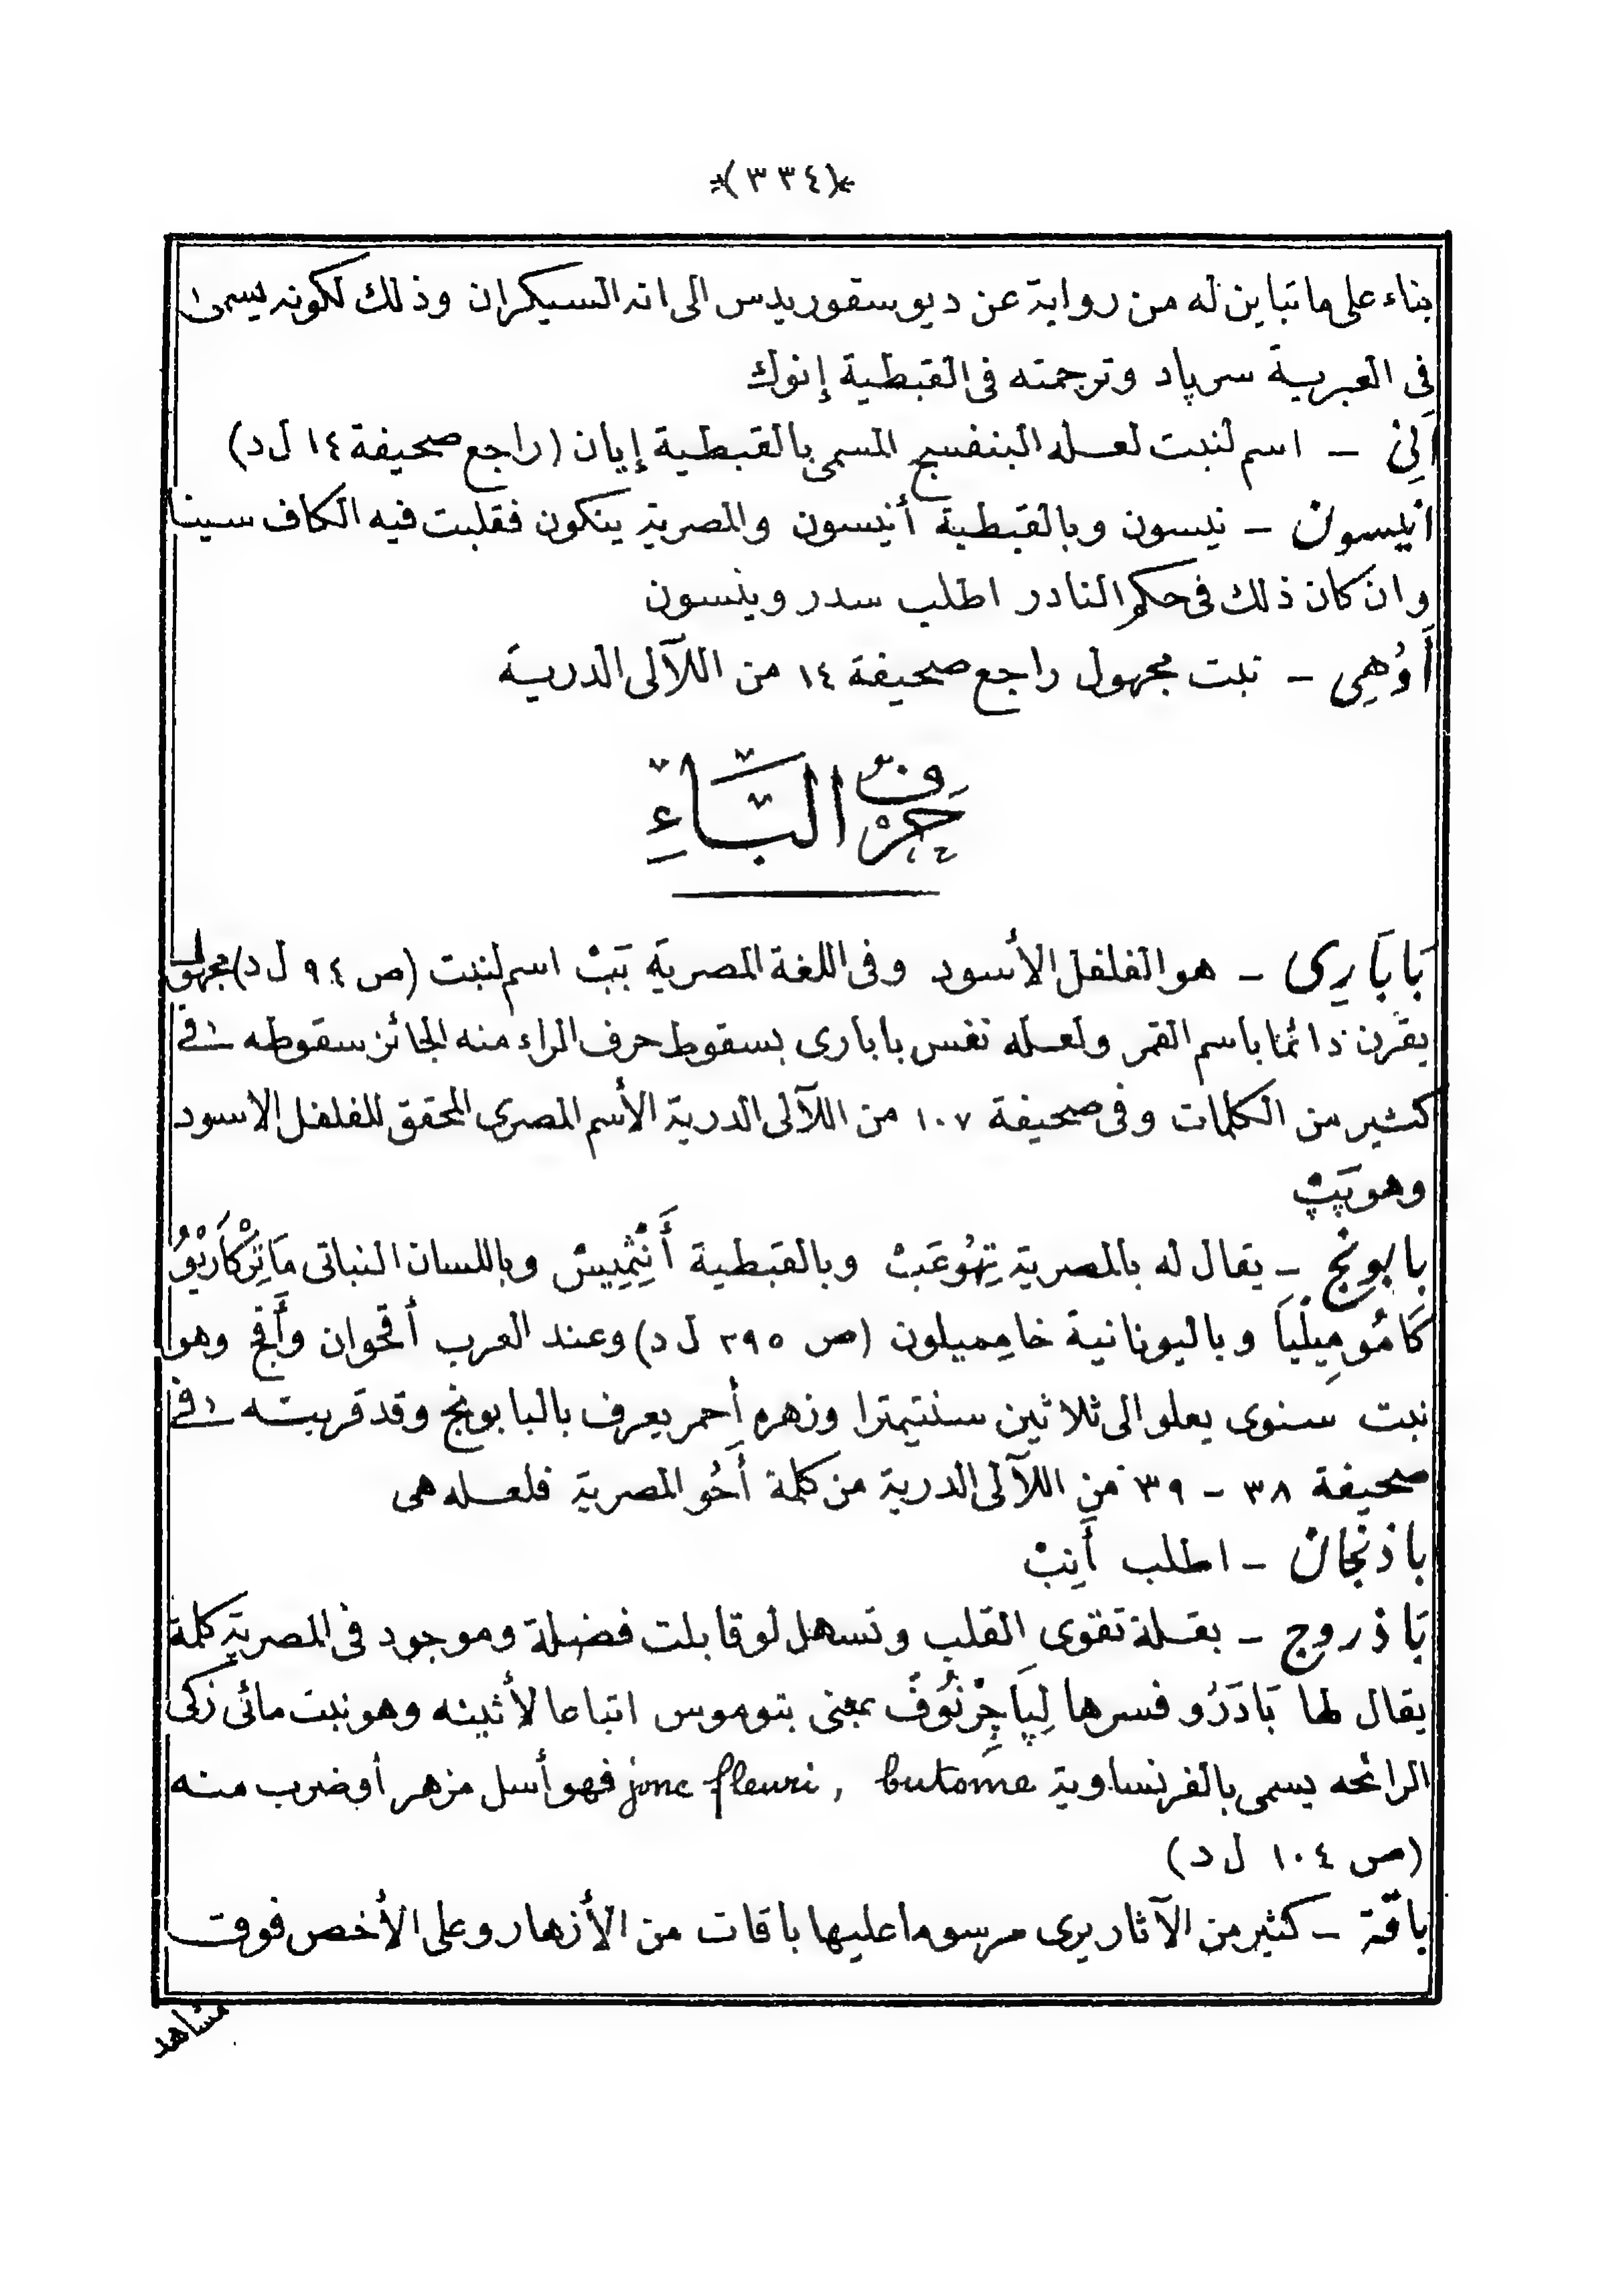 *(٣٣٤)*
بناء على ما تباين له من رواية عن ديوسقوريدس الى انه السيكران وذلك لكونه يسمى
فى العبرية سرپاد وترجمته فى القبطية إنوك
اَنِىْ – اسم لنبت لعله البنفسج المسمى بالقبطية إيان (راجع صحيفة ١٤ ل د)
انيسون – نيسون وبالقبطية أنيسون والمصرية ينكون فقلبت فيه الكاف سينا
وان كان ذلك فى حكم النادر اطلب سدر وينسون
أَوُهِى – نبت مجهول راجع صحيفة ١٤ من اللآلى الدرية
حَرْفُ البَّاءِ
بَابَارِى – هو الفلفل الأسود وفى اللغة المصرية بَبْ اسم لنبت (ص ٩٤ ل د) مجهول
يقرن دائما باسم القمر ولعله نفس بابارى بسقوط حرف الراء منه الجائز سقوطه فى
كثير من الكلمات وفى صحيفة ١٠٧ من اللآلى الدرية الأسم المصرى المحقق للفلفل الاسود
وهو پَپْ
بابونج – يقال له بالمصرية تِهُوعَبْ وبالقبطية أَنْثِمِيسْ وباللسان النباتى مَاتِرْكَارْيُو
كَامُومِيلْيَا وباليونانية خاممييلون (ص ٢٩٥ ل د) وعند العرب أقحوان وأَقح وهو
نبت سنوى يعلو الى ثلاثين سنتيمترا وزهره أحمر يعرف بالبابونج وقد قربته فى
صحيفة ٣٨ – ٣٩ من اللآلى الدرية من كلمة أَخُو المصرية فلعله هى
باذنجان – اطلب أَنِبْ
بَاذروج – بقلة تقوى القلب وتسهل لو قابلت فضلة وموجود فى المصرية كلمة
يقال لها بَادَرُو فسرها لِيپَاجِرْنُوفْ بمعنى بتوموس اتباعا لأثينه وهو نبت مائى زكى
الرائحه يسمى بالفرنساوية jonc fleuri, butome فهو أسل مزهر أو ضرب منه
(ص ١٠٤ ل د)
باقة – كثير من الآثار يرى مرسوما عليها باقات من الأزهار وعلى الأخص فوق
مشاهد